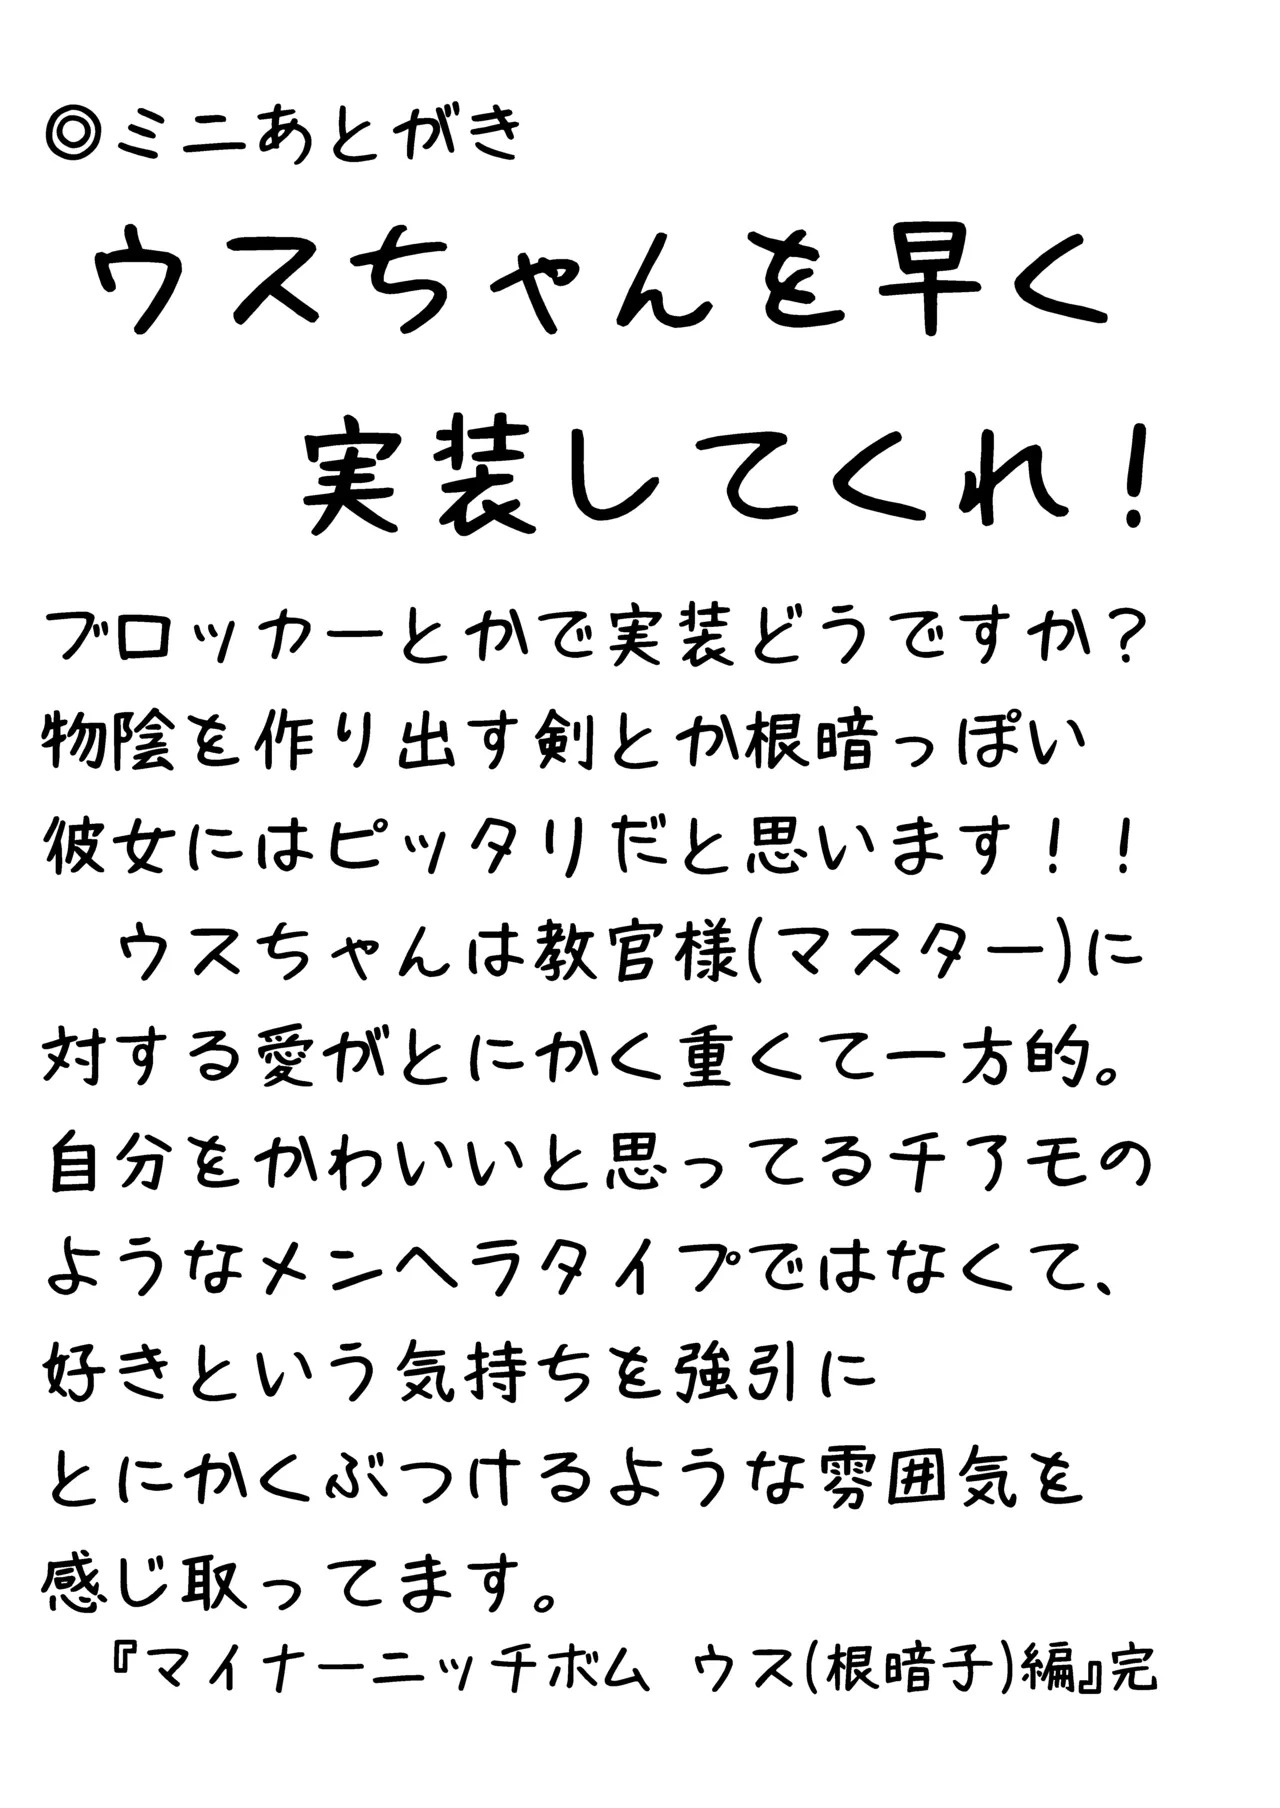 ◎ミニあとがき
ウスちゃんを早く
実装してくれ！
ブロッカーとかで実装どうですか？
物陰を作り出す剣とか根暗っぽい
彼女にはピッタリだと思います！！
ウスちゃんは教官様(マスター)に
対する愛がとにかく重くて一方的。
自分をかわいいと思ってるチアモの
ようなメンヘラタイプではなくて、
好きという気持ちを強引に
とにかくぶつけるような雰囲気を
感じ取ってます。
『マイナーニッチボム　ウス(根暗子)編』完